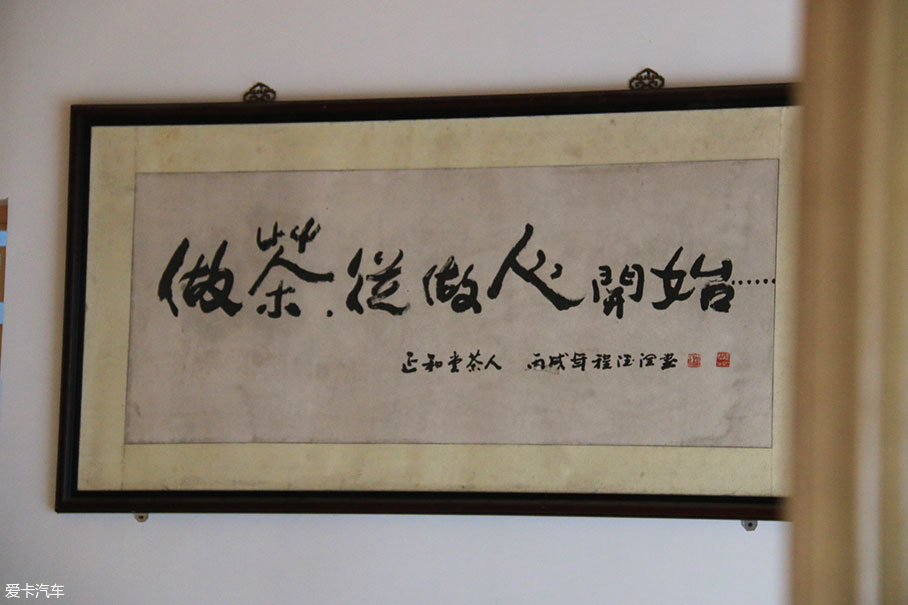 做茶.從做人開始……
正和堂茶人 丙戌年程
爱卡汽车